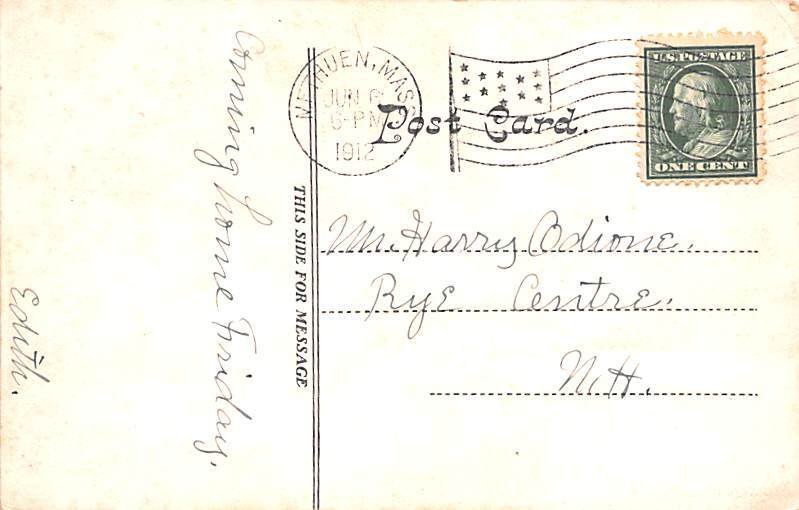 Coming home Friday.
Edith.
THIS SIDE FOR MESSAGE
METHUEN, MASS
JUN 6
6-PM
1912
Post Card.
U.S. POSTAGE
ONE CENT
Mr. Harry Odione.
Rye Centre.
N.H.